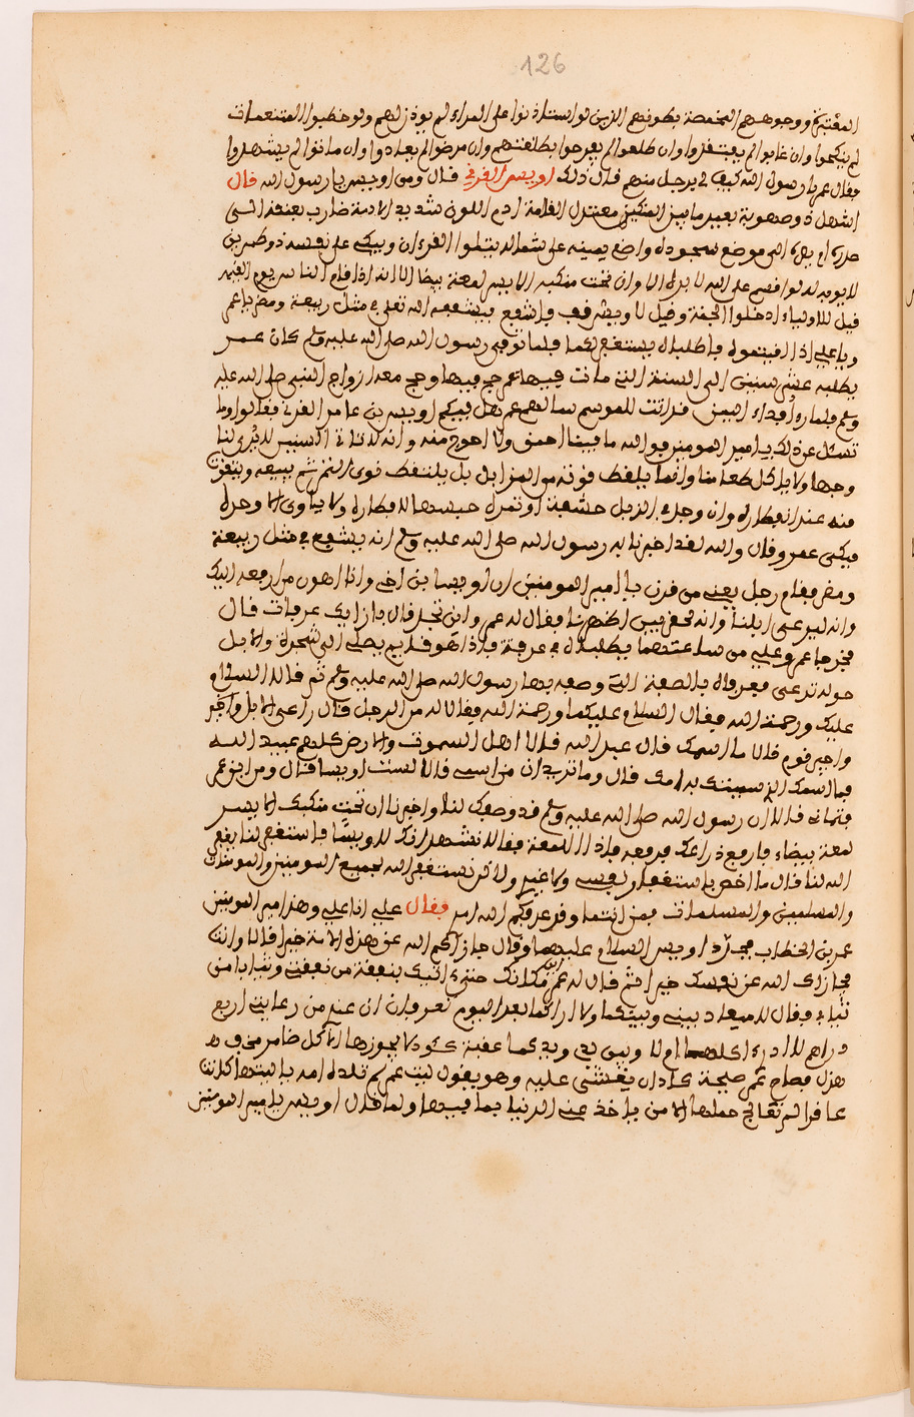 126
المغبرة وجوههم المخمصة بطونهم الذين لو استاذنوا على الامراء لم يوذن لهم ولو خطبوا المتنعمات
لم ينكحوا وان غابوا لم يفتقدوا وان طلعوا لم يفرحوا بطلعتهم وان مرضوا لم يعادوا وان ماتوا لم يشهدوا
فقال عمر يا رسول الله كيف لي برجل منهم قال ذلك اويس القرني قال ومن اويس يا رسول الله قال
اشهل ذو صهوبة بعيد ما بين المنكبين معتدل القامة ادم اللون شديد الادمة ضارب بذقنه الى
صدره رام ببصره الى موضع سجوده واضع يمينه على شماله يتلوا القرءان ويبكي على نفسه ذو طمرين
لا يوبه له لو اقسم على الله لابره الا وان تحت منكبه الايسر لمعة بيضا الا انه اذا قام الناس يوم القيمة
قيل للاولياء ادخلوا الجنة وقيل لاويس قف فاشفع فيشفعه الله تعلى في مثل ربيعة ومضر يا عمر
ويا علي اذا لقيتموه فاطلباه يستغفر لكما فلما توفي رسول الله صلى الله عليه وسلم كان عمر
يطلبه عشر سنين الى السنة التي مات فيها عمر حج فيها وحج معه ازواج النبي صلى الله عليه
وسلم فلما راوا وفداء اليمن قد اتت للموسم سالهم عمر هل فيكم اويس بن عامر القرني فقالوا وما
تسئل عن ذلك يا امير المومنين فوالله ما فينا احمق ولا احوج منه وانه لتاتي السنين لا يرى لنا
وجها ولا ياكل طعامنا وانما يلقط قوته من المزابل بل يلتقط نوى التمر ثم يبيعه وينفق
منه عند افطاره وان وجد في الزبل حشفة او تمرة حبسها لافطاره ولا ياوى الا وحده
فبكى عمر وقال والله لقد اخبرنا به رسول الله صلى الله عليه وسلم انه يشفع في مثل ربيعة
ومضر فقام رجل يعني من قرن يا امير المومنين ان اويسا ابن اخي وانا اهون من ارفعه اليك
وانه ليرعى ابلنا وانه لحقير بين اظهرنا فقال له عمر واين نجده قال باراك عرفات قال
فخرجا عمر وعلي من ساعتهما يطلبانه في عرفة فاذا هو قايم يصلي الى شجرة والابل
حوله ترعى فعرفاه بالصفة التي وصفه بها رسول الله صلى الله عليه وسلم ثم قالا السلام
عليك ورحمة الله فقال السلام عليكما ورحمة الله فقالا له من الرجل قال راعى الابل واجير
واجير قوم قالا ما اسمك قال عبد الله قالا اهل السموت والارض كلهم عبيد الله
فما اسمك الذي سميتك به امك قال وما تريدان من اسمي قالا الست اويسا قال ومن اين عر
فتماني قالا ان رسول الله صلى الله عليه وسلم قد وصفك لنا واخبرنا ان تحت منكبك الايسر
لمعة بيضاء فارفع ذراعك فرفعه فاذا اللمعة فقالا نشهد انك لاويسا فاستغفر لنا يغفر
الله لنا قال ما اخص باستغفار نفسي ولا غير ولاكن نستغفر الله لجميع المومنين والمومنات
والمسلمين والمسلمات فمن انتما وقد عرفكم الله امر فقال علي انا علي وهذا امير المومنين
عمر بن الخطاب فجدد اويس السلام عليهما وقال جازاكم الله عن هذه الامة خيرا قالا وانت
فجازاك الله عن نفسك خيرا ثم قال له عمر مكانك حتى اتيك بنفقة من نفقتي وثيابا من
ثيابي فقال لا ميعاد بيني وبينكما ولا اراكما بعد اليوم تعرفان ان عندي من رعايتي اربع
دراهم لا ادري اكلهما ام لا وبين يدي ويديكما عقبة كؤد لا يجوزها الا كل ضامر مخف م
هزل فصاح عمر صيحة كاد ان يغشى عليه وهو يقول ليت عمر لم تلده امه يا ليتها كانت
عاقرا لم تعالج حملها الا من ياخذ عني الدنيا بما فيها ولما قال اويس يا امير المومنين